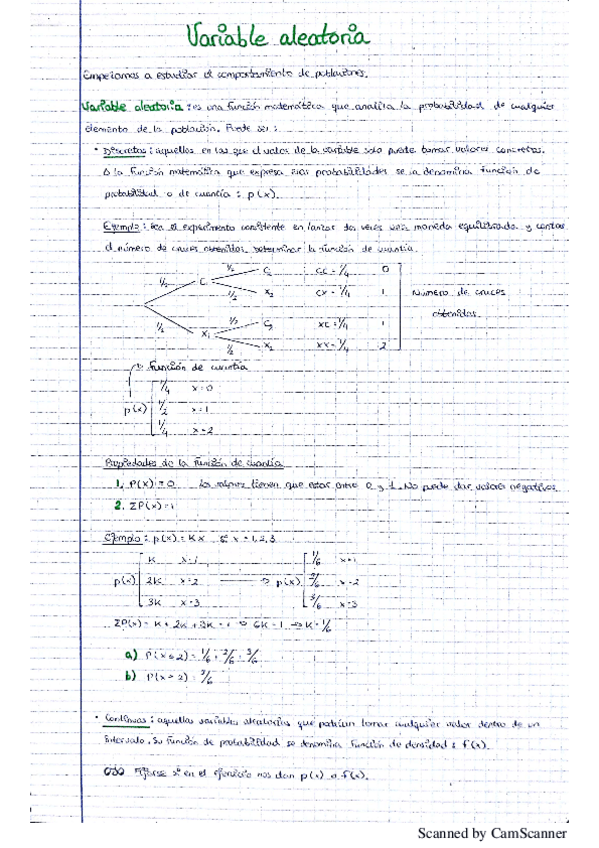 Variable aleatoria
Empezamos a estudiar el comportamiento de poblaciones.
Variable aleatoria: es una función matemática que analiza la probabilidad de cualquier
elemento de la población. Puede ser:
· Discretas: aquellas en las que el valor de la variable solo puede tomar valores concretos.
La función matemática que expresa esas probabilidades se la denomina función de
probabilidad o de cuantía: p(x).
Ejemplo: sea el experimento consistente en lanzar dos veces una moneda equilibrada y contar
el número de cruces obtenidas. Determinar la función de cuantía.
1/2 C2 CC = 1/4 0
1/2 C
1/2 X2 CX = 1/4 1 Número de cruces
obtenidas.
1/2 C2 XC = 1/4 1
1/2 X1
1/2 X2 XX = 1/4 2
Función de cuantía
1/4 x=0
p(x) 1/2 x=1
1/4 x=2
Propiedades de la función de cuantía
1. P(x) ≥ 0 Los valores tienen que estar entre 0 y 1. No puede dar valores negativos.
2. ΣP(x)=1
Ejemplo: p(x) = Kx x = 1,2,3
K x=1 1/6 x=1
p(x) 2K x=2 p(x) 2/6 x=2
3K x=3 3/6 x=3
ΣP(x) = K + 2K + 3K = 1 ⇒ 6K = 1 ⇒ K = 1/6
a) P(x ≤ 2) = 1/6 + 2/6 = 3/6
b) P(x > 2) = 3/6
· Continuas: aquellas variables aleatorias que podrían tomar cualquier valor dentro de un
intervalo. Su función de probabilidad se denomina función de densidad: f(x).
Ojo Fijarse si en el ejercicio nos dan p(x) o f(x).
Scanned by CamScanner